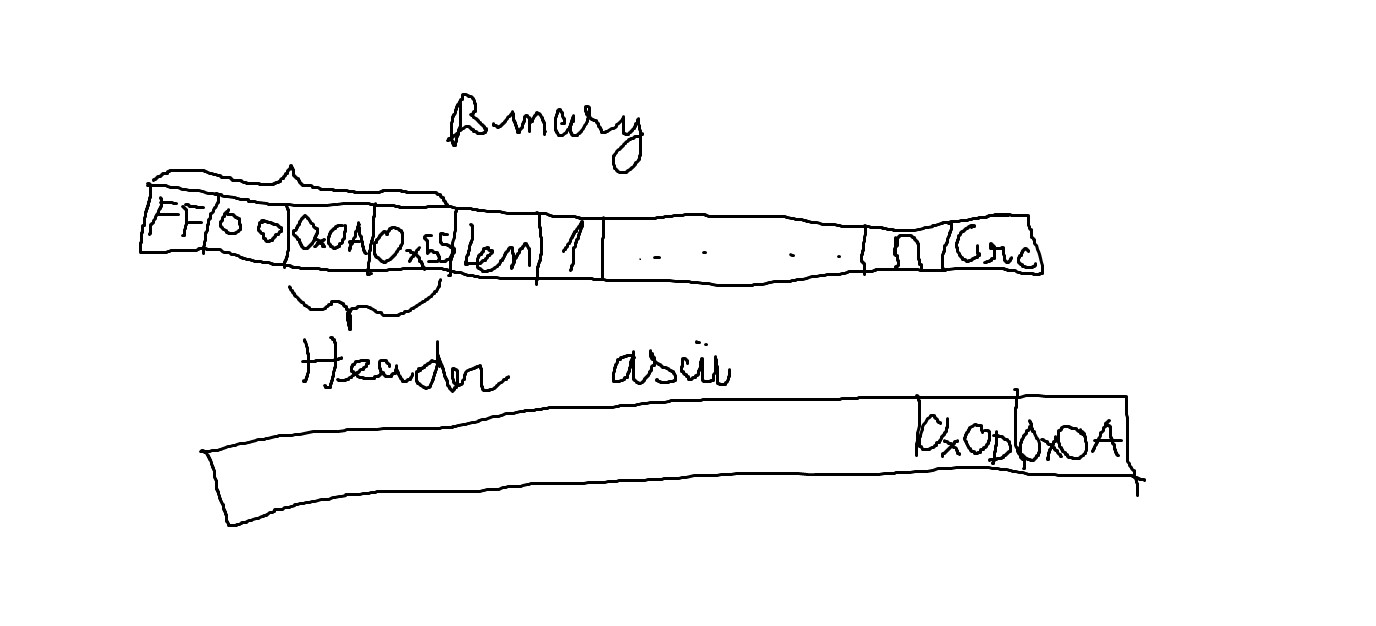 Binary
FF 00 0x0A 0x55 Len 1 . . . . . n Crc
Header
ascii
0x0D 0x0A